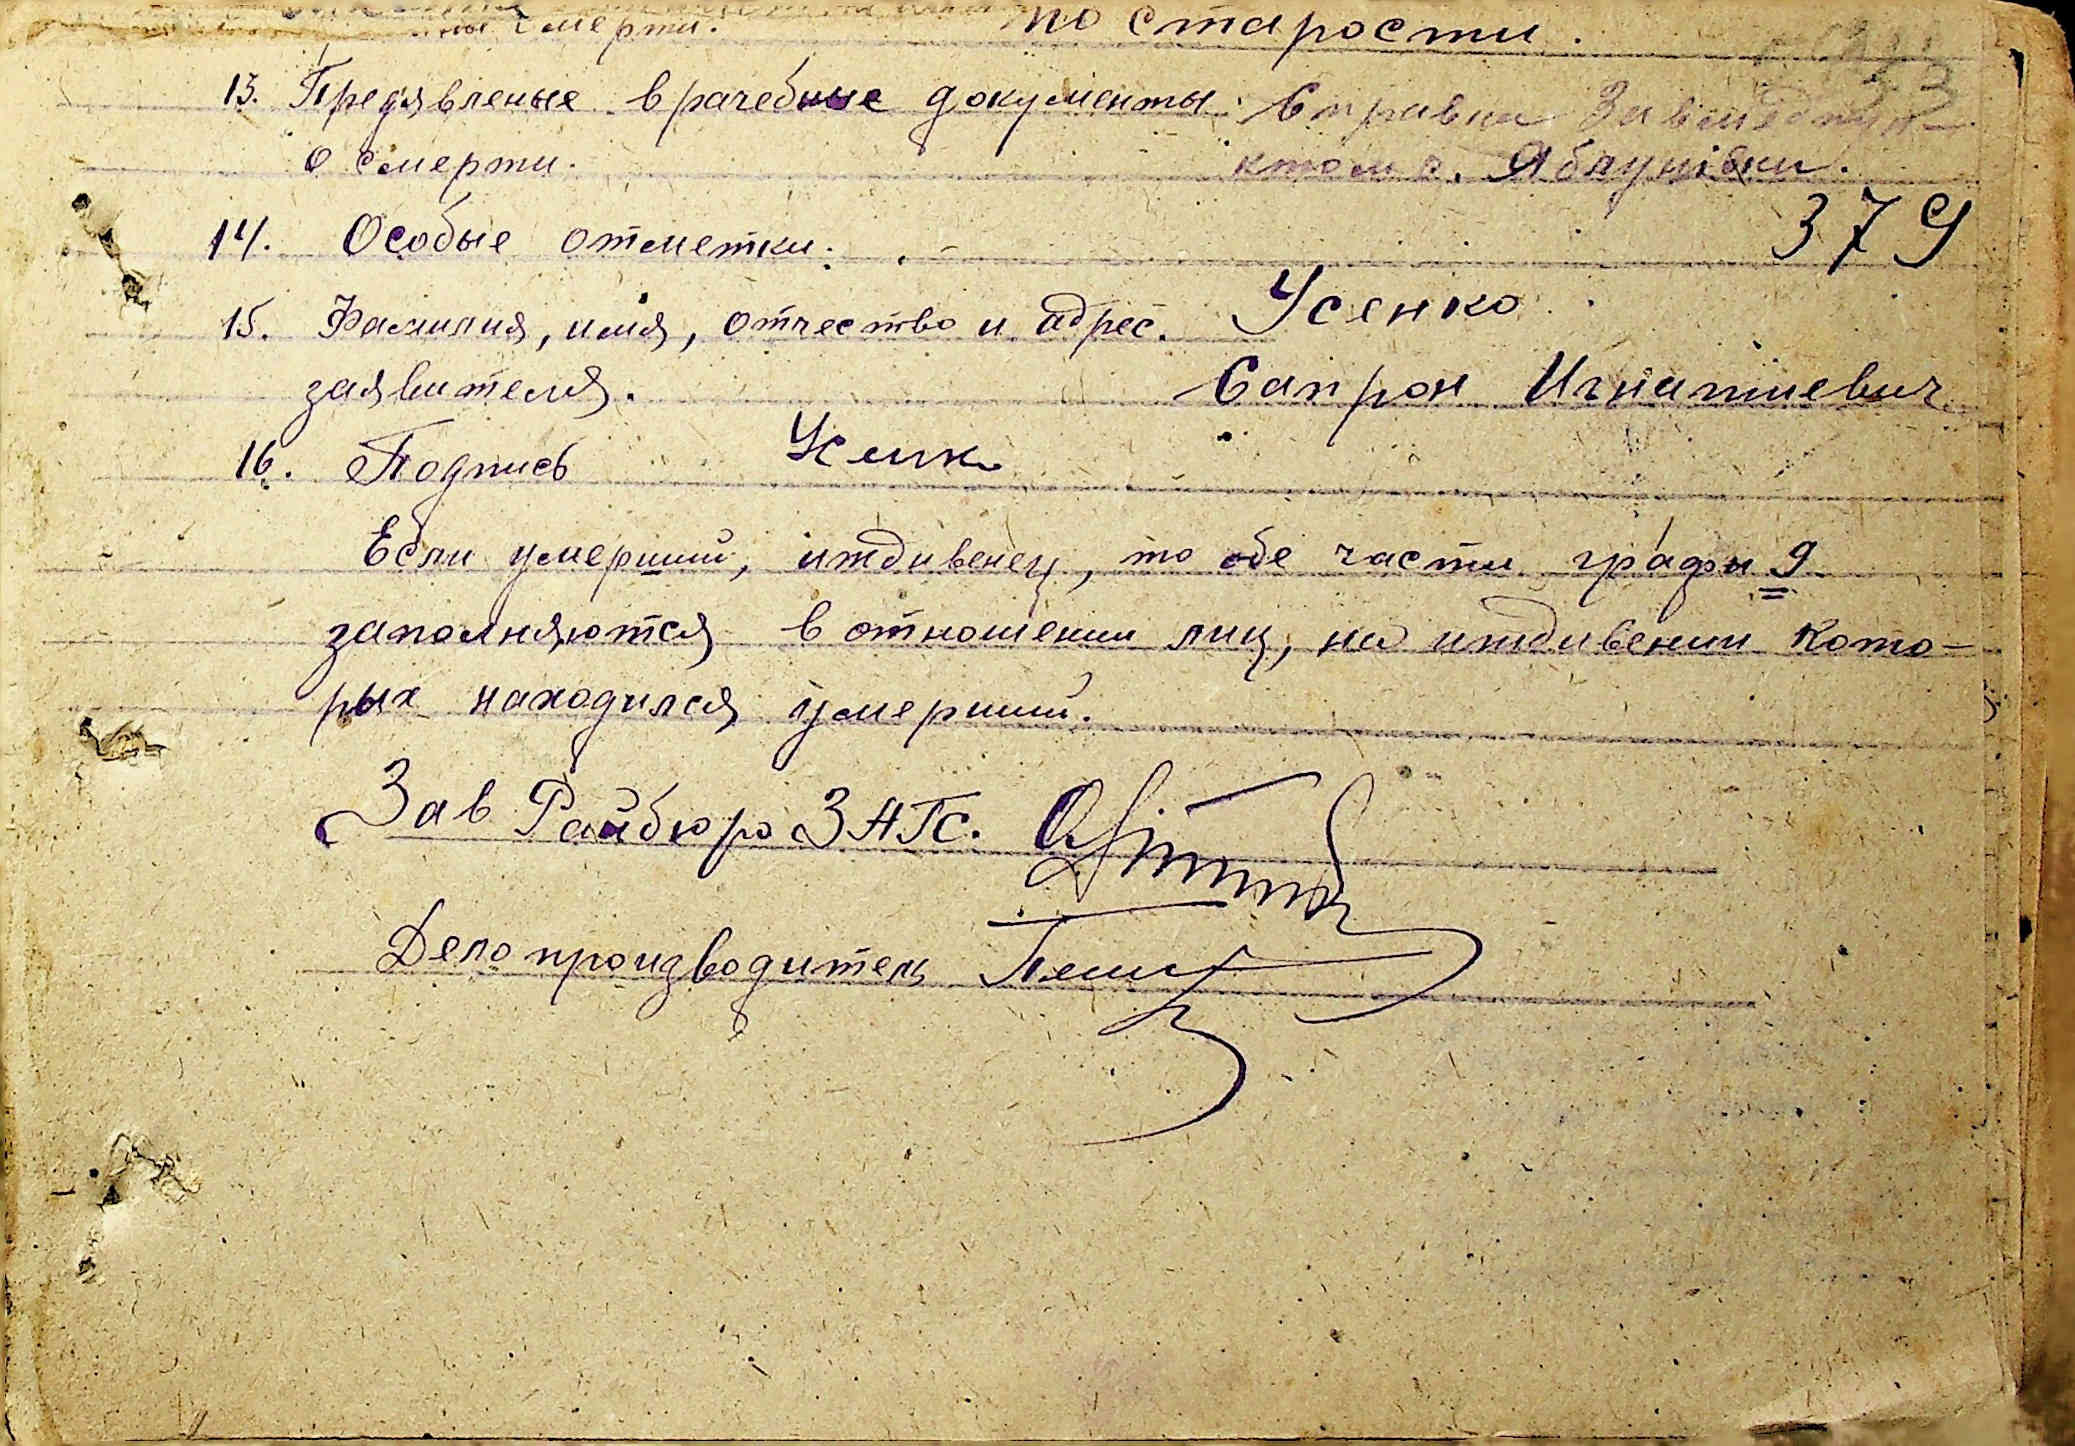 смерти. по старости.
13. Предявленые врачебные документы Справка Завмедпун-
о смерти. ктом с. Яблунівки.
379
14. Особые отметки.
15. Фамилия, имя, отчество и адрес. Усенко
заявителя. Сапрон Игнатиевич
16. Подпись
Если умерший, иждивенец, то обе части графы 9
заполняются в отношении лиц, на иждивении кото-
рых находился умерший.
Зав Райбюро ЗАГС.
Делопроизводитель